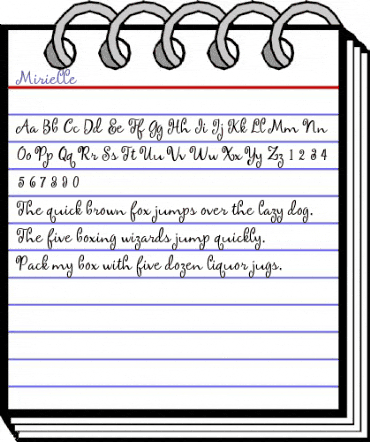 Mirielle
Aa Bb Cc Dd Ee Ff Gg Hh Ii Jj Kk Ll Mm Nn
Oo Pp Qq Rr Ss Tt Uu Vv Ww Xx Yy Zz 1 2 3 4
5 6 7 8 9 0
The quick brown fox jumps over the lazy dog.
The five boxing wizards jump quickly.
Pack my box with five dozen liquor jugs.